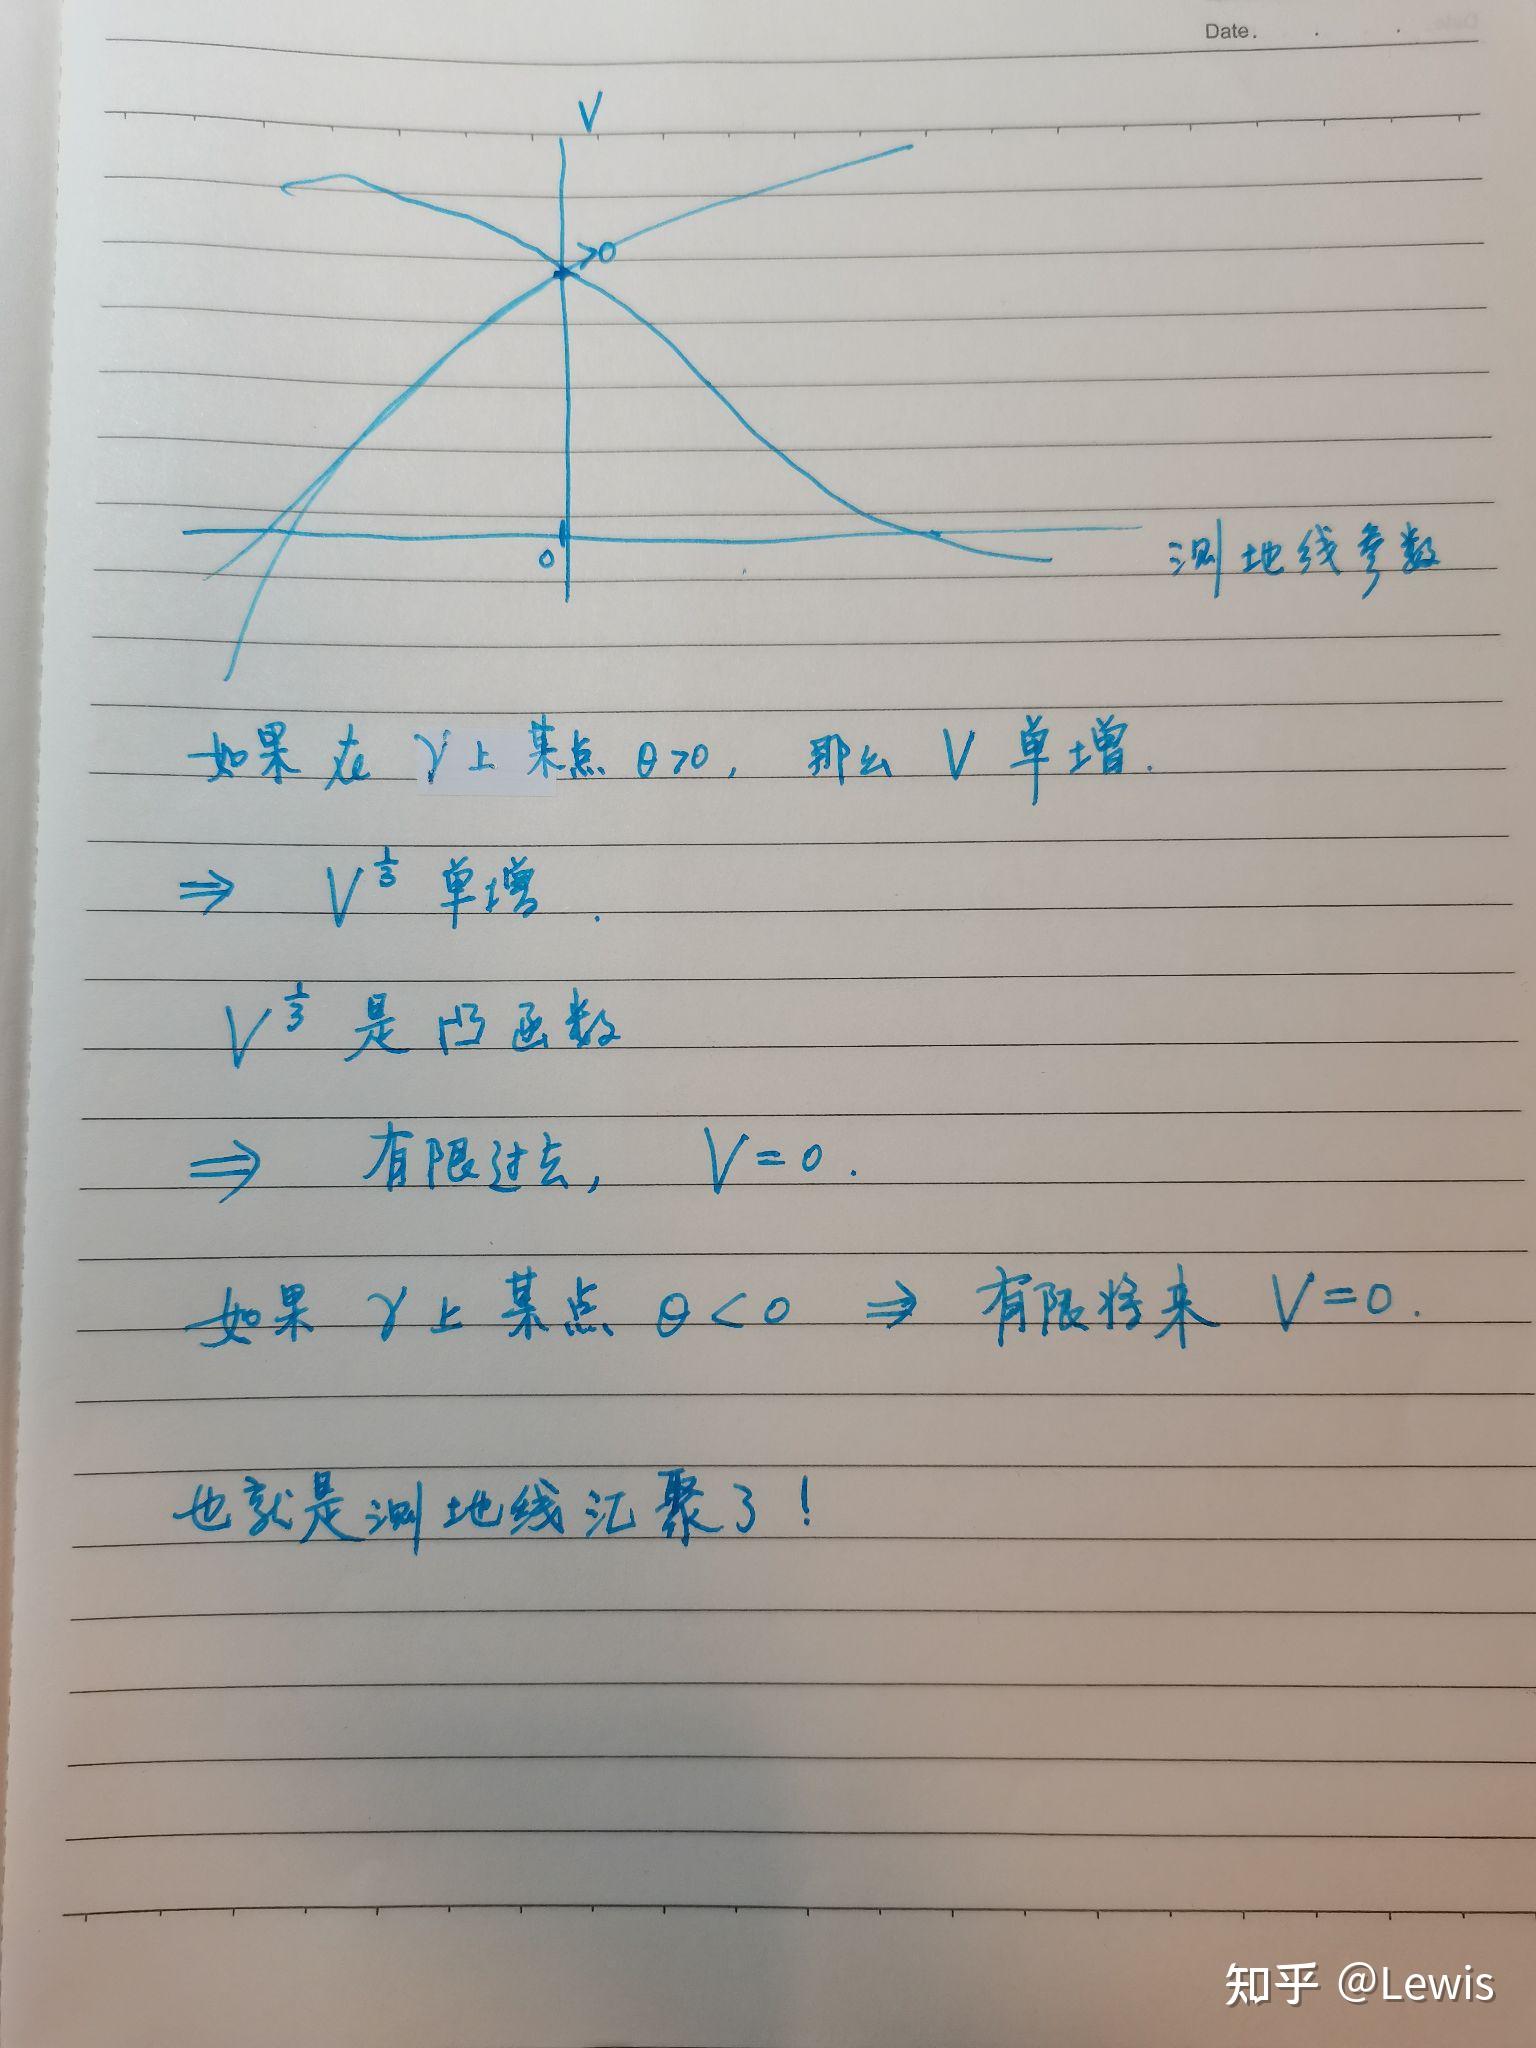 Date.
V
>0
0
测地线参数
如果在 γ上某点 θ>0, 那么 V 单增.
⇒ V^{1/3} 单增.
V^{1/3} 是凹函数
⇒ 有限过去, V=0.
如果 γ上某点 θ<0 ⇒ 有限将来 V=0.
也就是测地线汇聚了!
知乎 @Lewis